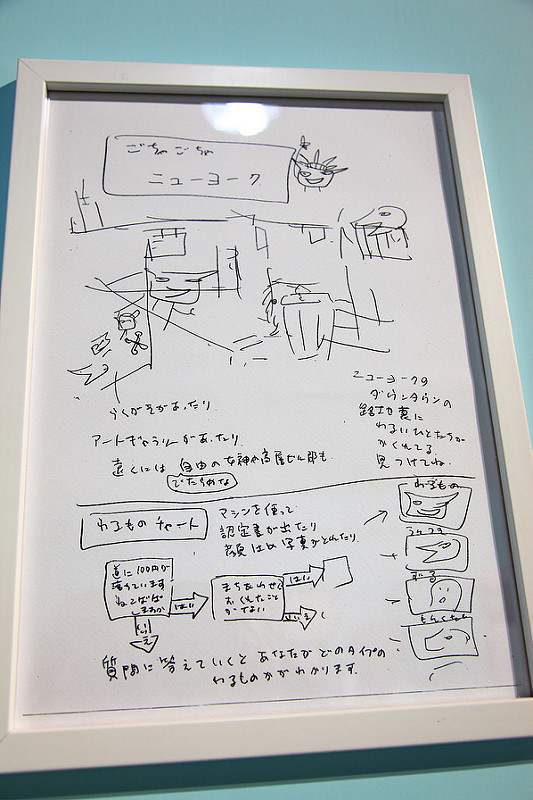 ごちゃごちゃ
ニューヨーク
らくがきがあったり
アートギャラリーがあったり
遠くには自由の女神や高層ビル郡も
でたらめな
ニューヨークの
ダウンタウンの
路地裏に
わるいひとたちが
かくれてる
見つけてね.
わるものチャート
マシンを使って
認定書が出たり
顔はめ写真がとれたり
道に100円が
落ちています
ねこばば
しますか
はい
いいえ
まちあわせに
おくれたこと
がない
はい
いいえ
わるもの
ずる
もんくちゃん
質問に答えていくとあなたがどのタイプの
わるものかがわかります.